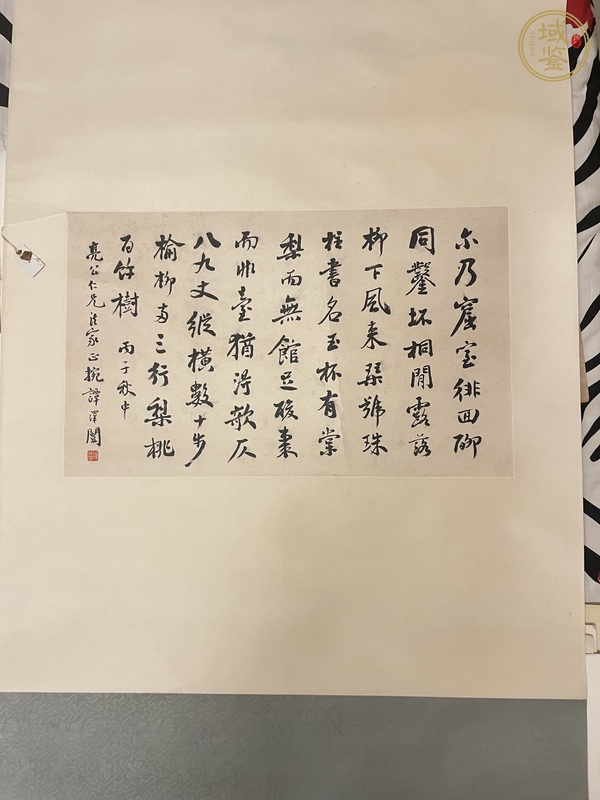 尒乃窟室徘回聊
同鑿坏桐閒露落
柳下風来琹號珠
柱書名玉杯有棠
梨而無館足酸棗
而非臺猶得欹仄
八九丈縱橫數十步
榆柳兩三行梨桃
百餘樹 丙子秋中
亮公仁兄法家正捥 譚澤闓
域鉴